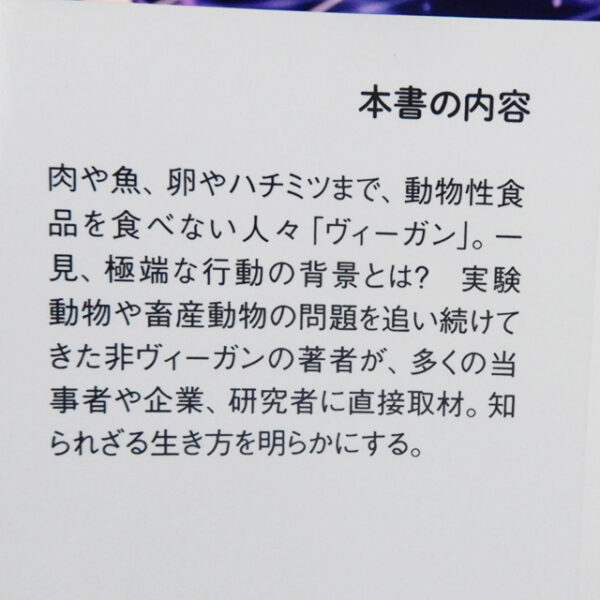 本書の内容
肉や魚、卵やハチミツまで、動物性食
品を食べない人々「ヴィーガン」。一
見、極端な行動の背景とは?　実験
動物や畜産動物の問題を追い続けて
きた非ヴィーガンの著者が、多くの当
事者や企業、研究者に直接取材。知
られざる生き方を明らかにする。